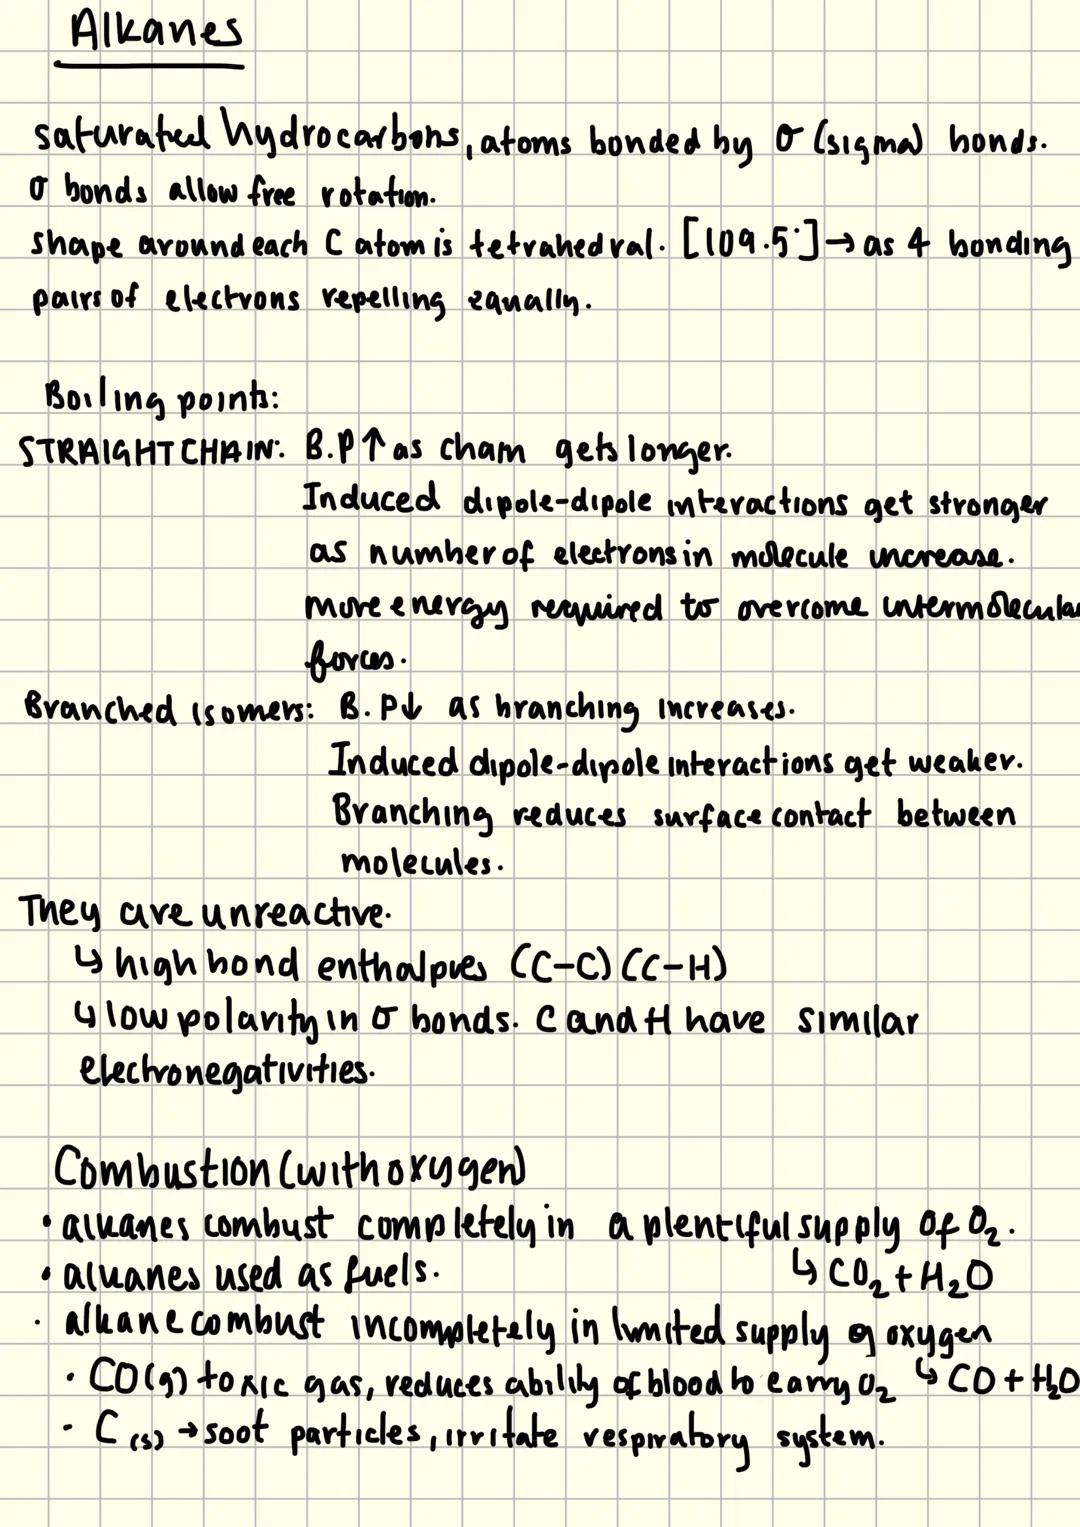 Alkanes
saturated hydrocarbons, atoms bonded by σ (sigma) bonds.
σ bonds allow free rotation.
shape around each C atom is tetrahedral. [109.5°] → as 4 bonding
pairs of electrons repelling equally.
Boiling points:
STRAIGHT CHAIN: B.P ↑ as chain gets longer.
Induced dipole-dipole interactions get stronger
as number of electrons in molecule increase.
more energy required to overcome intermolecular
forces.
Branched isomers: B.P↓ as branching increases.
Induced dipole-dipole interactions get weaker.
Branching reduces surface contact between
molecules.
They are unreactive.
↳ high bond enthalpies (C-C) (C-H)
↳ low polarity in σ bonds. C and H have similar
electronegativities.
Combustion (with oxygen)
• alkanes combust completely in a plentiful supply of O₂.
• alkanes used as fuels. ↳ CO₂ + H₂O
• alkane combust incompletely in limited supply of oxygen
• CO(g) toxic gas, reduces ability of blood to carry O₂ ↳ CO + H₂O
• C (s) → soot particles, irritate respiratory system.